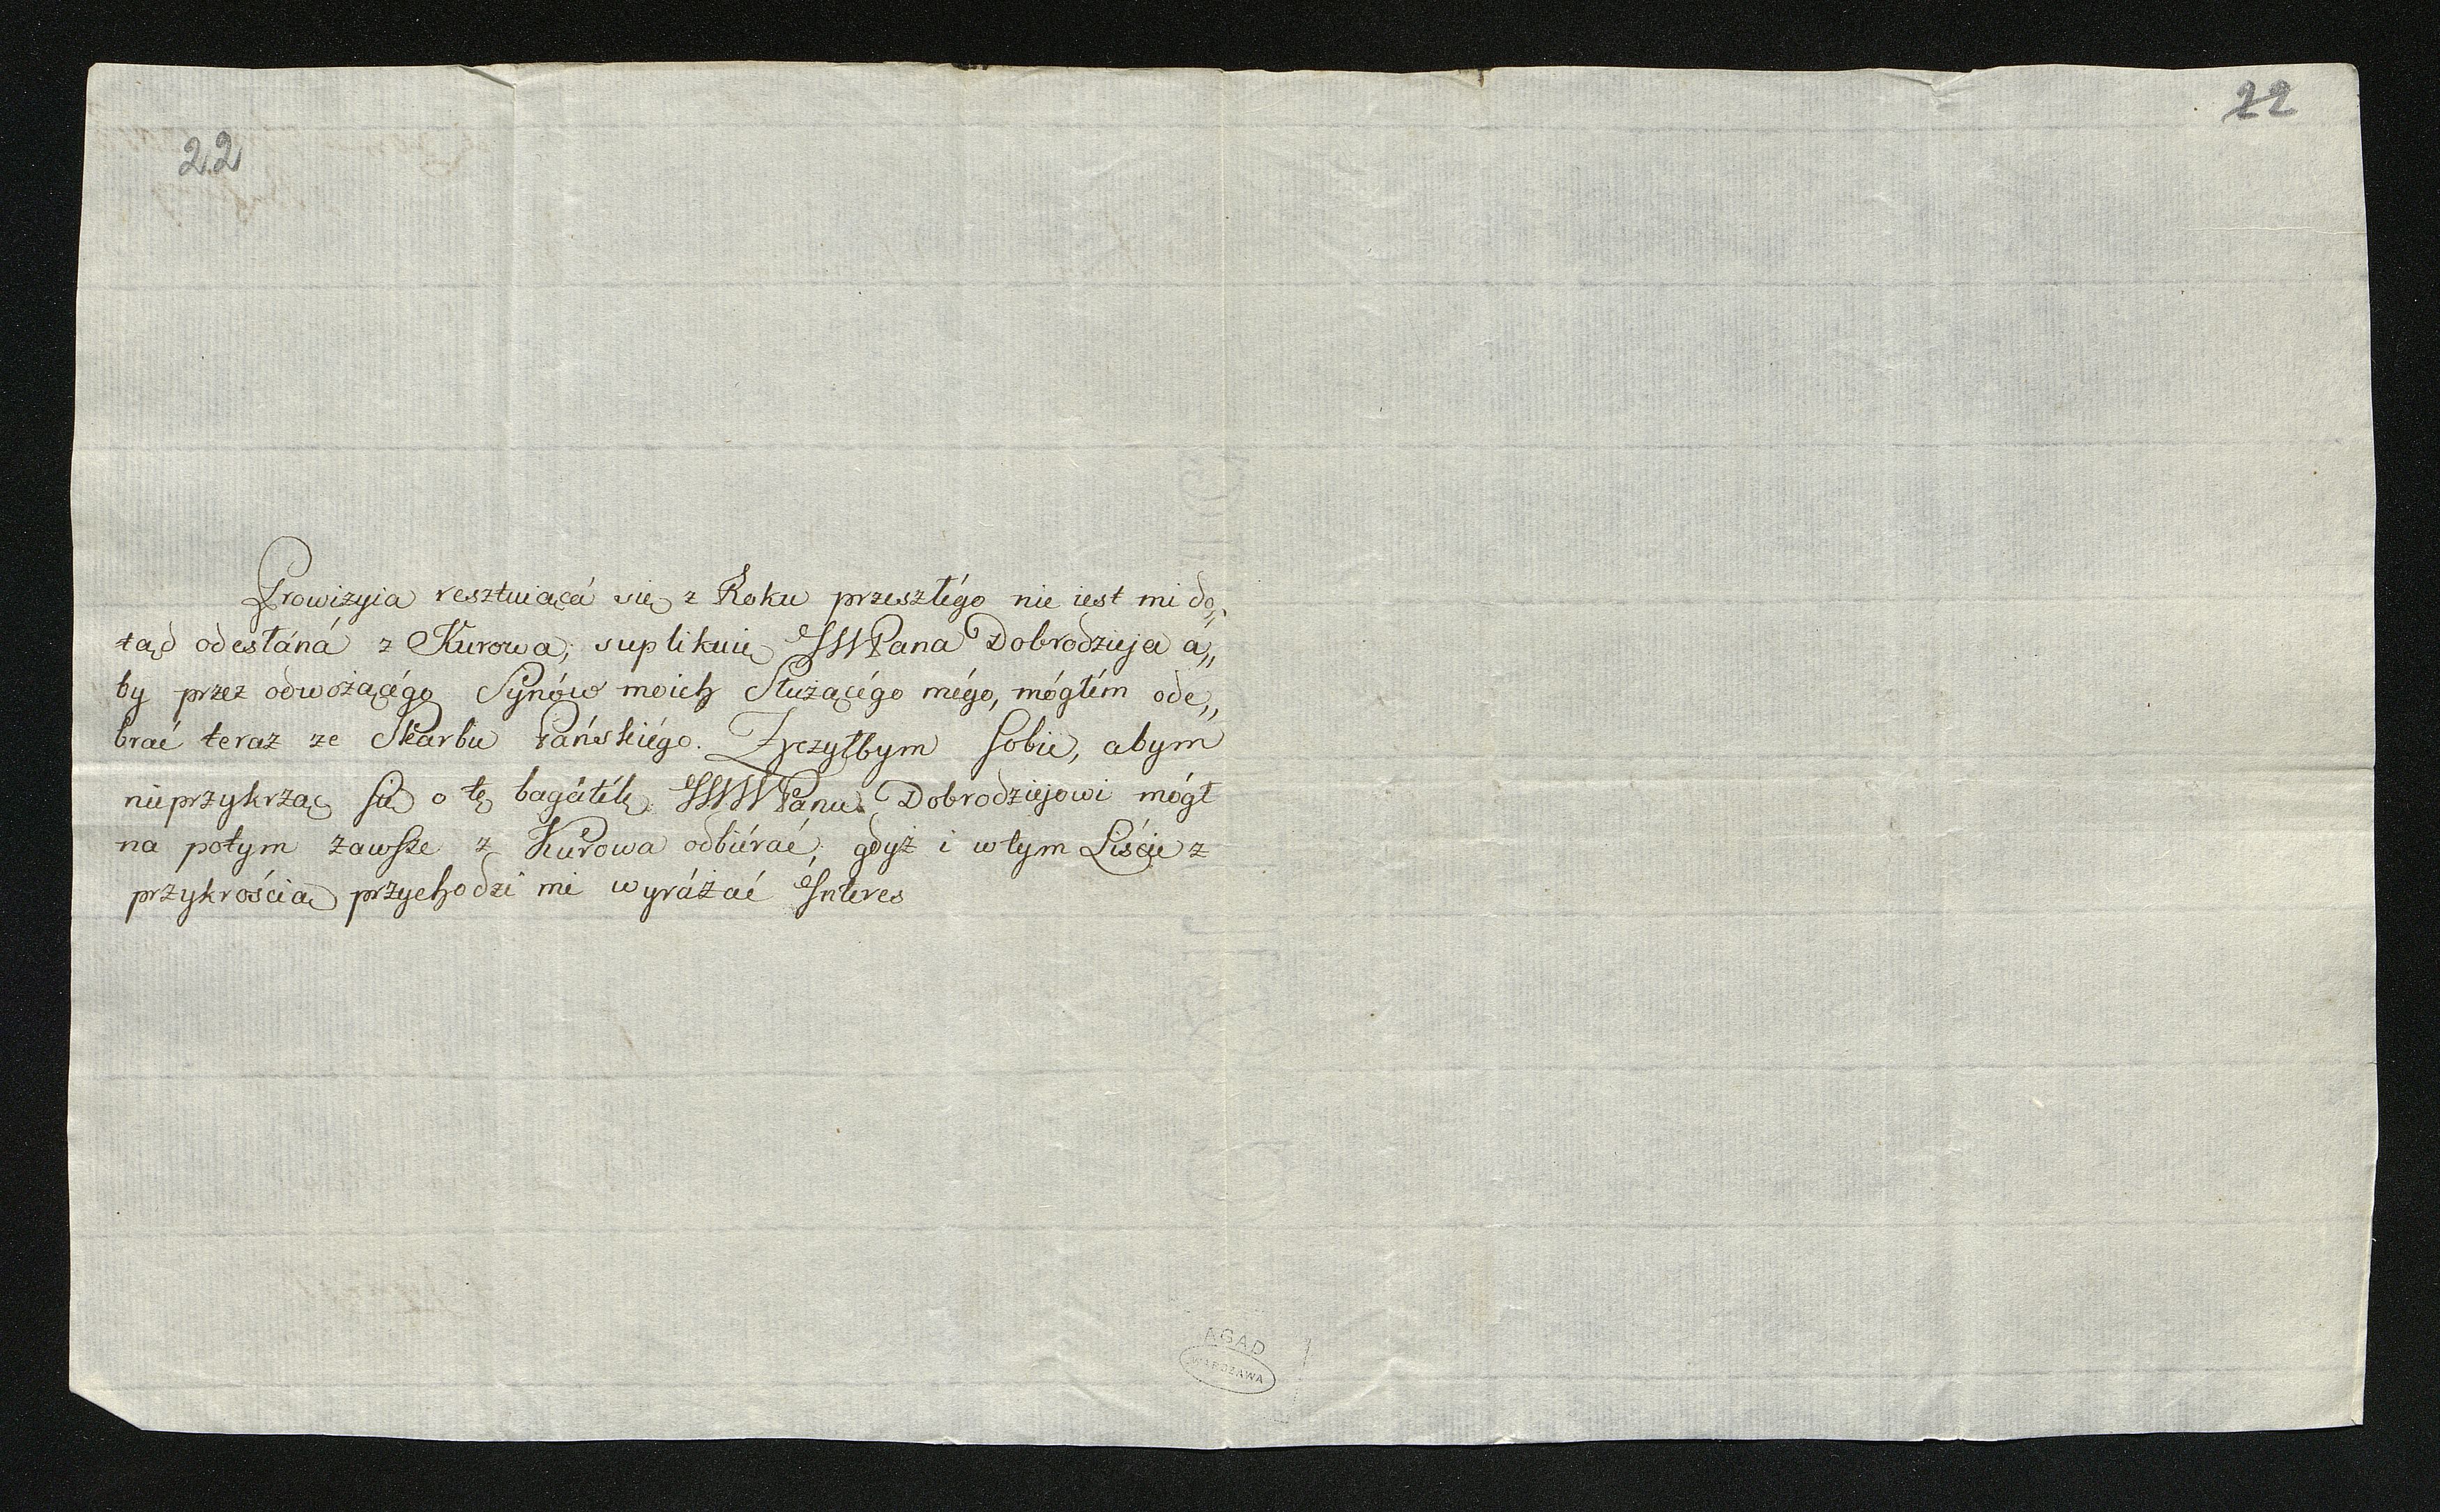 22
22
Prowizyia resztuiącá się z Roku przeszłégo nie iest mi do„
tąd odesłáná z Kurowa; suplikuię JWPana Dobrodzieja á„
by przez odwożącégo Synów moich Służącégo mégo, mógłém ode„
brać teraz ze Skarbu Pańskiégo. Zyczyłbym sobie, abym
nieprzykrząc się o tę bagátélę JWWPanu Dobrodziejowi mógł
na potym zawsze z Kurowa odbiérać, gdyż i w tym Liście z
przykrością przychodzi mi wyrážać Interes
AGAD
WARSZAWA